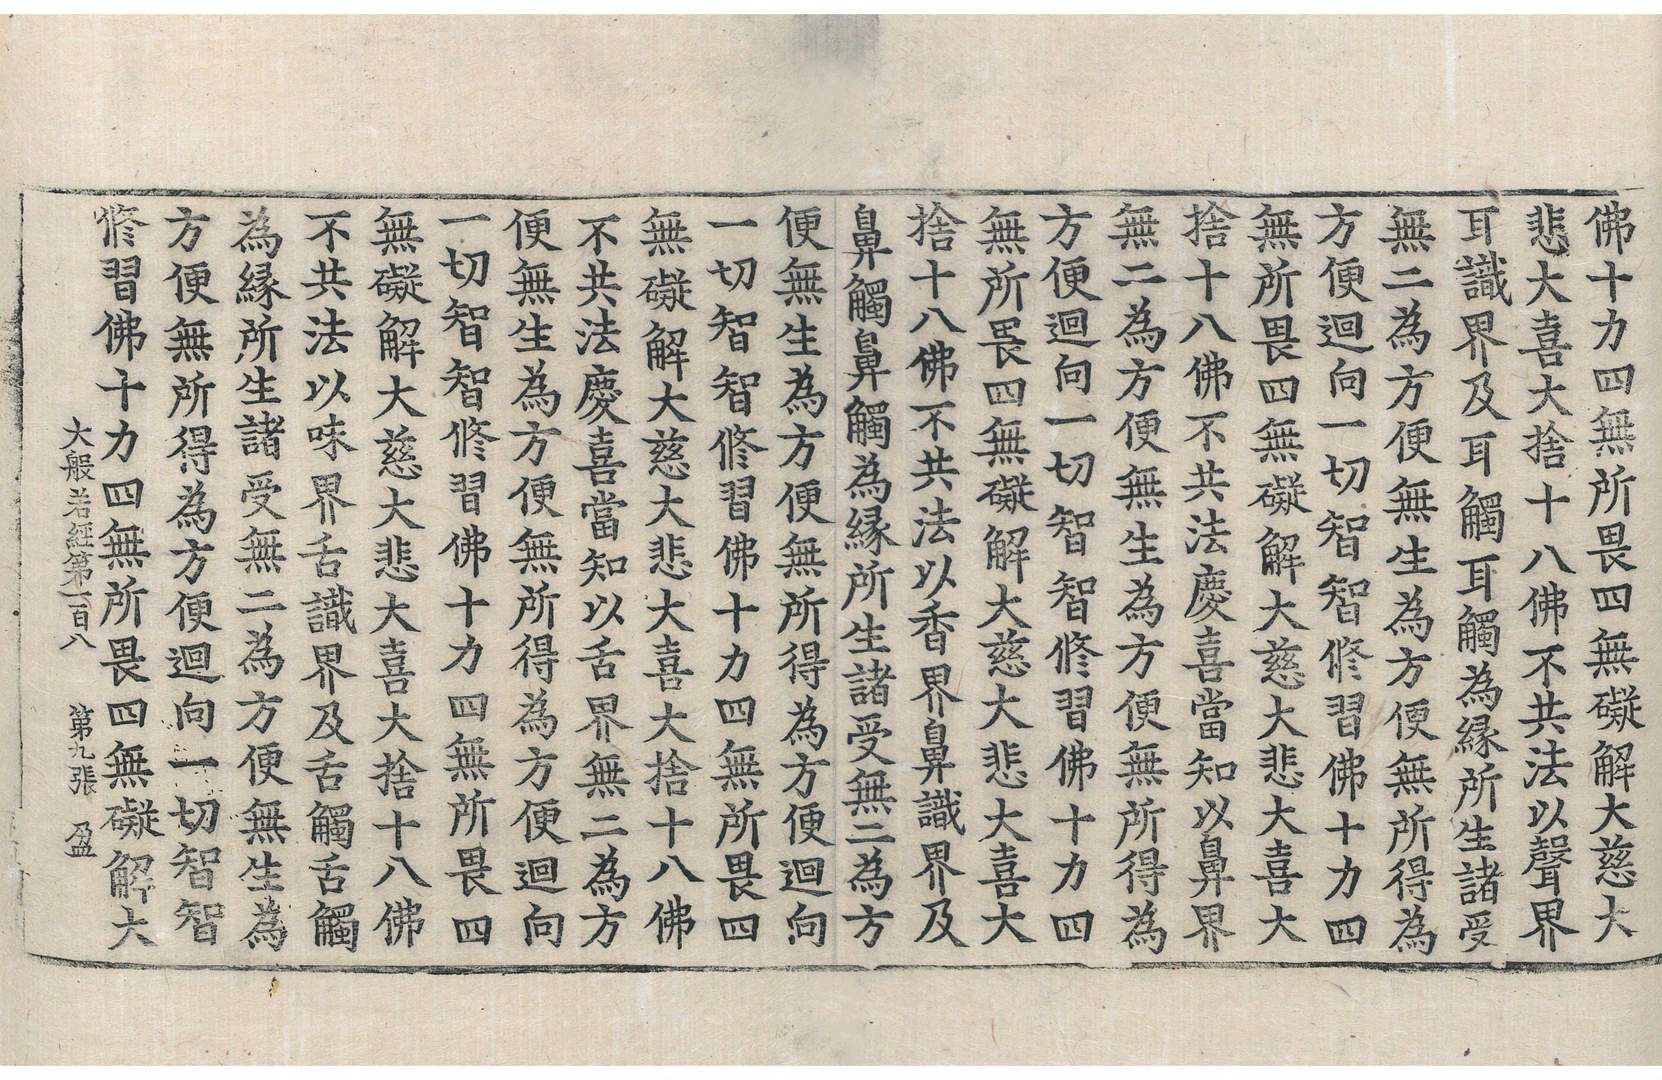 佛十力四無所畏四無礙解大慈大
悲大喜大捨十八佛不共法以聲界
耳識界及耳觸耳觸為緣所生諸受
無二為方便無生為方便無所得為
方便迴向一切智智修習佛十力四
無所畏四無礙解大慈大悲大喜大
捨十八佛不共法慶喜當知以鼻界
無二為方便無生為方便無所得為
方便迴向一切智智修習佛十力四
無所畏四無礙解大慈大悲大喜大
捨十八佛不共法以香界鼻識界及
鼻觸鼻觸為緣所生諸受無二為方
便無生為方便無所得為方便迴向
一切智智修習佛十力四無所畏四
無礙解大慈大悲大喜大捨十八佛
不共法慶喜當知以舌界無二為方
便無生為方便無所得為方便迴向
一切智智修習佛十力四無所畏四
無礙解大慈大悲大喜大捨十八佛
不共法以味界舌識界及舌觸舌觸
為緣所生諸受無二為方便無生為
方便無所得為方便迴向一切智智
修習佛十力四無所畏四無礙解大
大般若經第一百八 第九張 盈